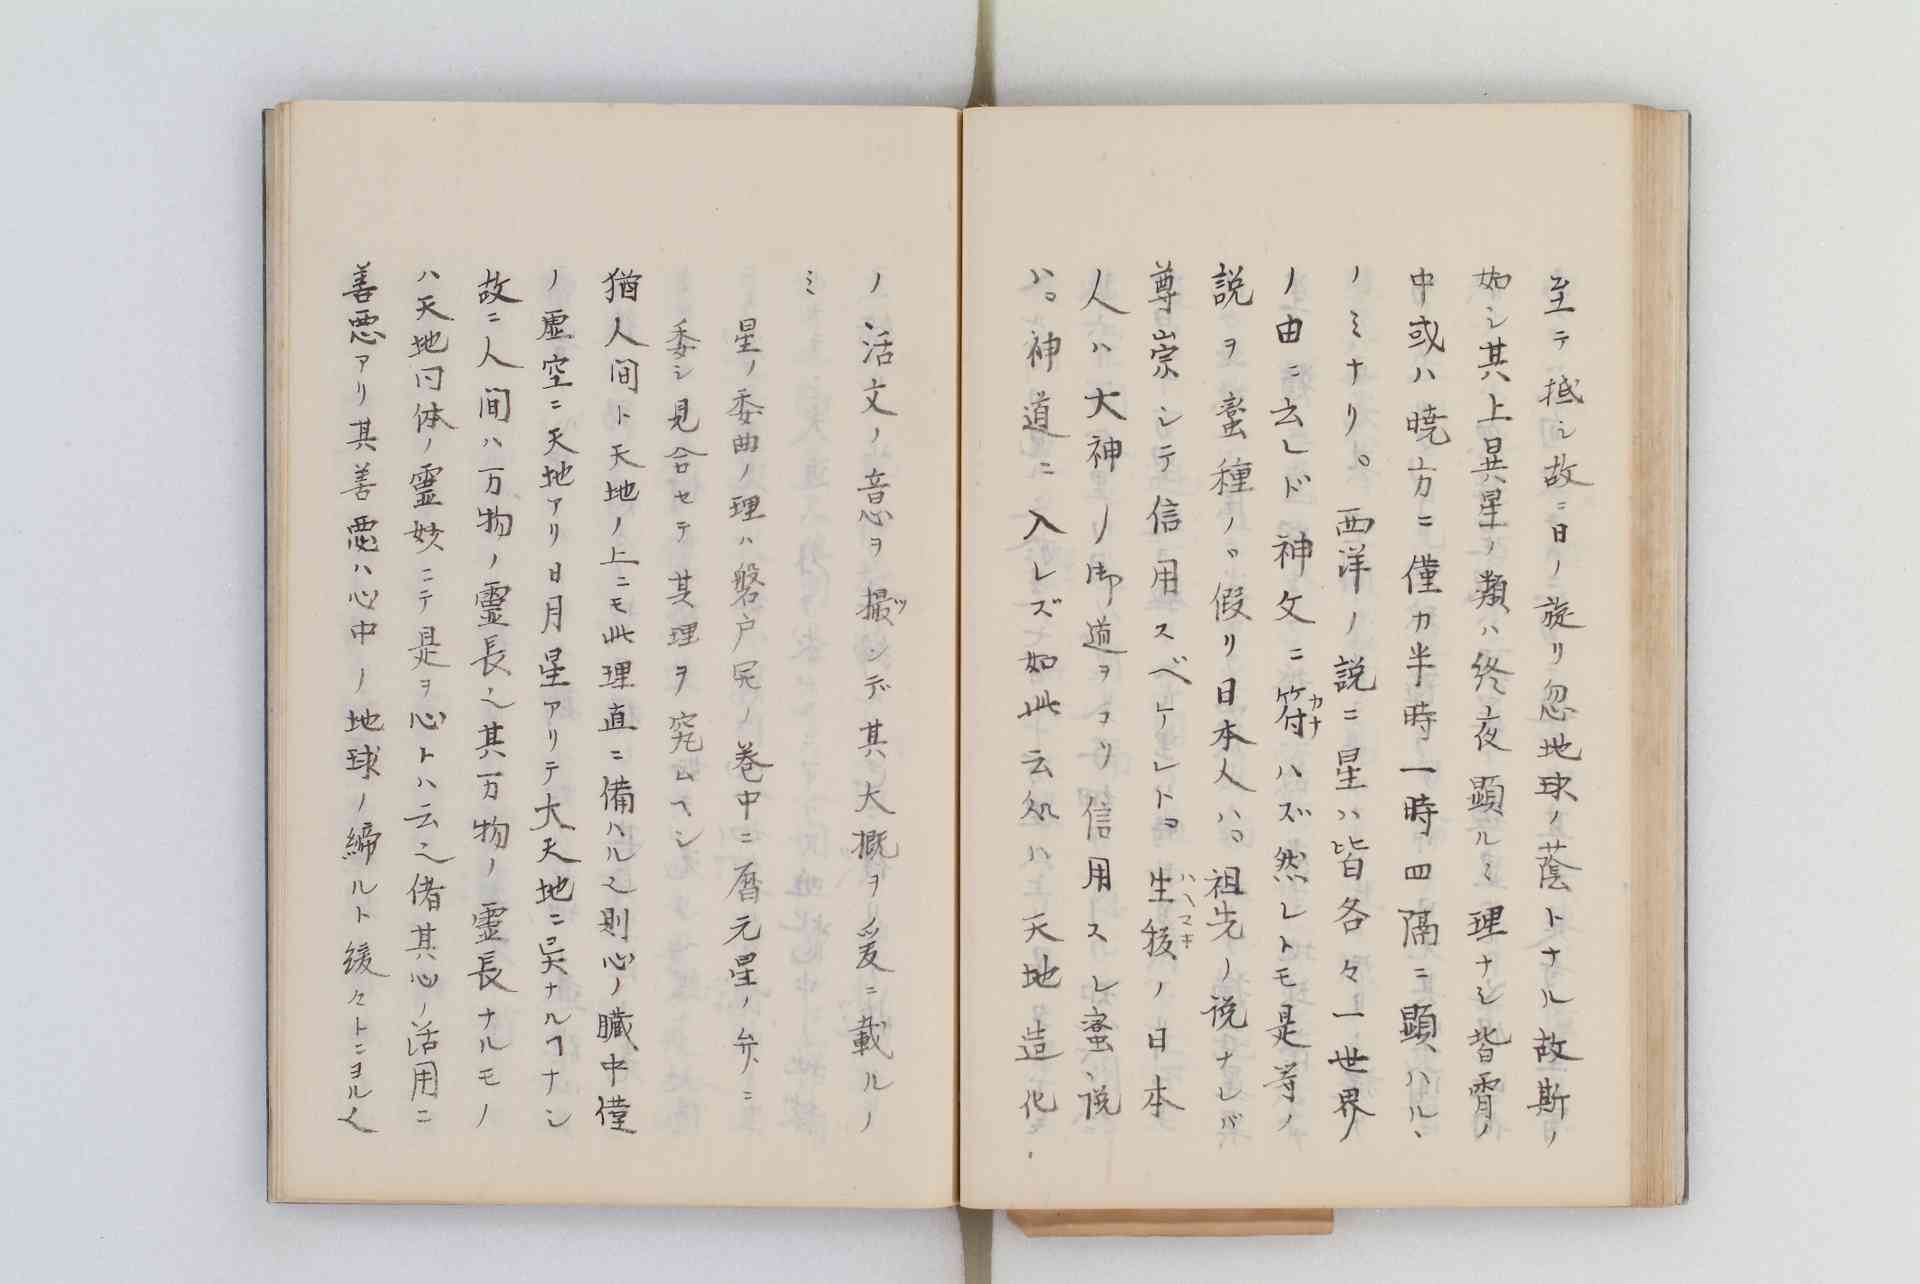 至テ抵シ故ニ日ノ旋リ忽地球ノ蔭トナル故斯ノ
如シ其上異星ノ類ハ終夜顕ルミ理ナシ皆霄ノ
中或ハ暁方ニ僅カ半時一時四隔ニ顕ハル丶
ノミナリ。西洋ノ説ニ星ハ皆各々一世界
ノ由ニ云レド神文ニ符カナハズ然レトモ是等ノ
説ヲ蛮種ノ假リ日本人ハ。祖先ノ説ナレバ
尊崇シテ信用スベケレト。生ハヘヌキノ日本
人ハ大神ノ御道ヲコリ信用スレ蛮説
ハ。神道ニ入レズ如此云処ハ天地造化
ノ活文ノ意ヲ撮ツンデ其大概ヲ爰ニ載ルノ
ミ
星ノ委曲ノ理ハ磐戸ノ巻中ニ暦元星ノ弁ニ
委シ見合セテ其理ヲ究ムヘシ
猶人間ト天地ノ上ニモ此理直ニ備ハル之則心ノ臓中僅
ノ虚空ニ天地アリ日月星アリテ大天地ニ異ナルコナシ
故ニ人間ハ万物ノ霊長之其万物ノ霊長ナルモノ
ハ天地同体ノ霊妙ニテ是ヲ心トハ云之偖其心ノ活用ニ
善悪アリ其善悪ハ心中ノ地球ノ締ルト緩々トニヨル